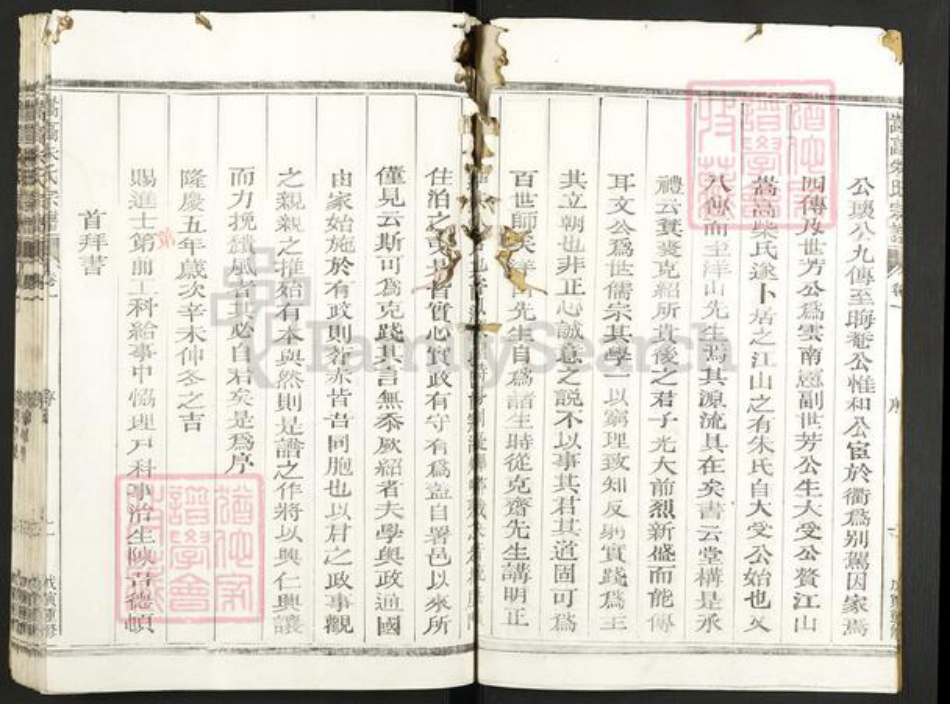 公壞公九傳至晦菴公惟和公宦於衢為别駕因家焉
四傳及世芳公為雲南憲副世芳公生大受公贅江山
嵩高柴氏遂卜居之江山之有朱氏自大受公始也又
八傳而生洋山先生焉其源流具在矣書云堂構是承
禮云箕裘克紹所貴後之君子光大前烈新盛而能傳
耳文公為世儒宗其學一以窮理致知反躬實踐為主
其立朝也非正心誠意之說不以事其君其道固可為
百世師矣洋山先生自為諸生時從克齋先生講明正
住泊之 皆實心實政有守有為盖自署邑以來所
僅見云斯可為克踐其言無忝厥紹者夫學與政通國
由家始施於有政則蒼赤皆吾同胞也以君之政事觀
之親親之推始有本與然則是譜之作將以興仁興讓
而力挽頹風者其必自君矣是為序
隆慶五年歲次辛未仲冬之吉
賜進士第前工科給事中協理戶科事治生陝晋德頓
首拜書
嵩高柴氏宗譜
卷一
序
FamilySearch